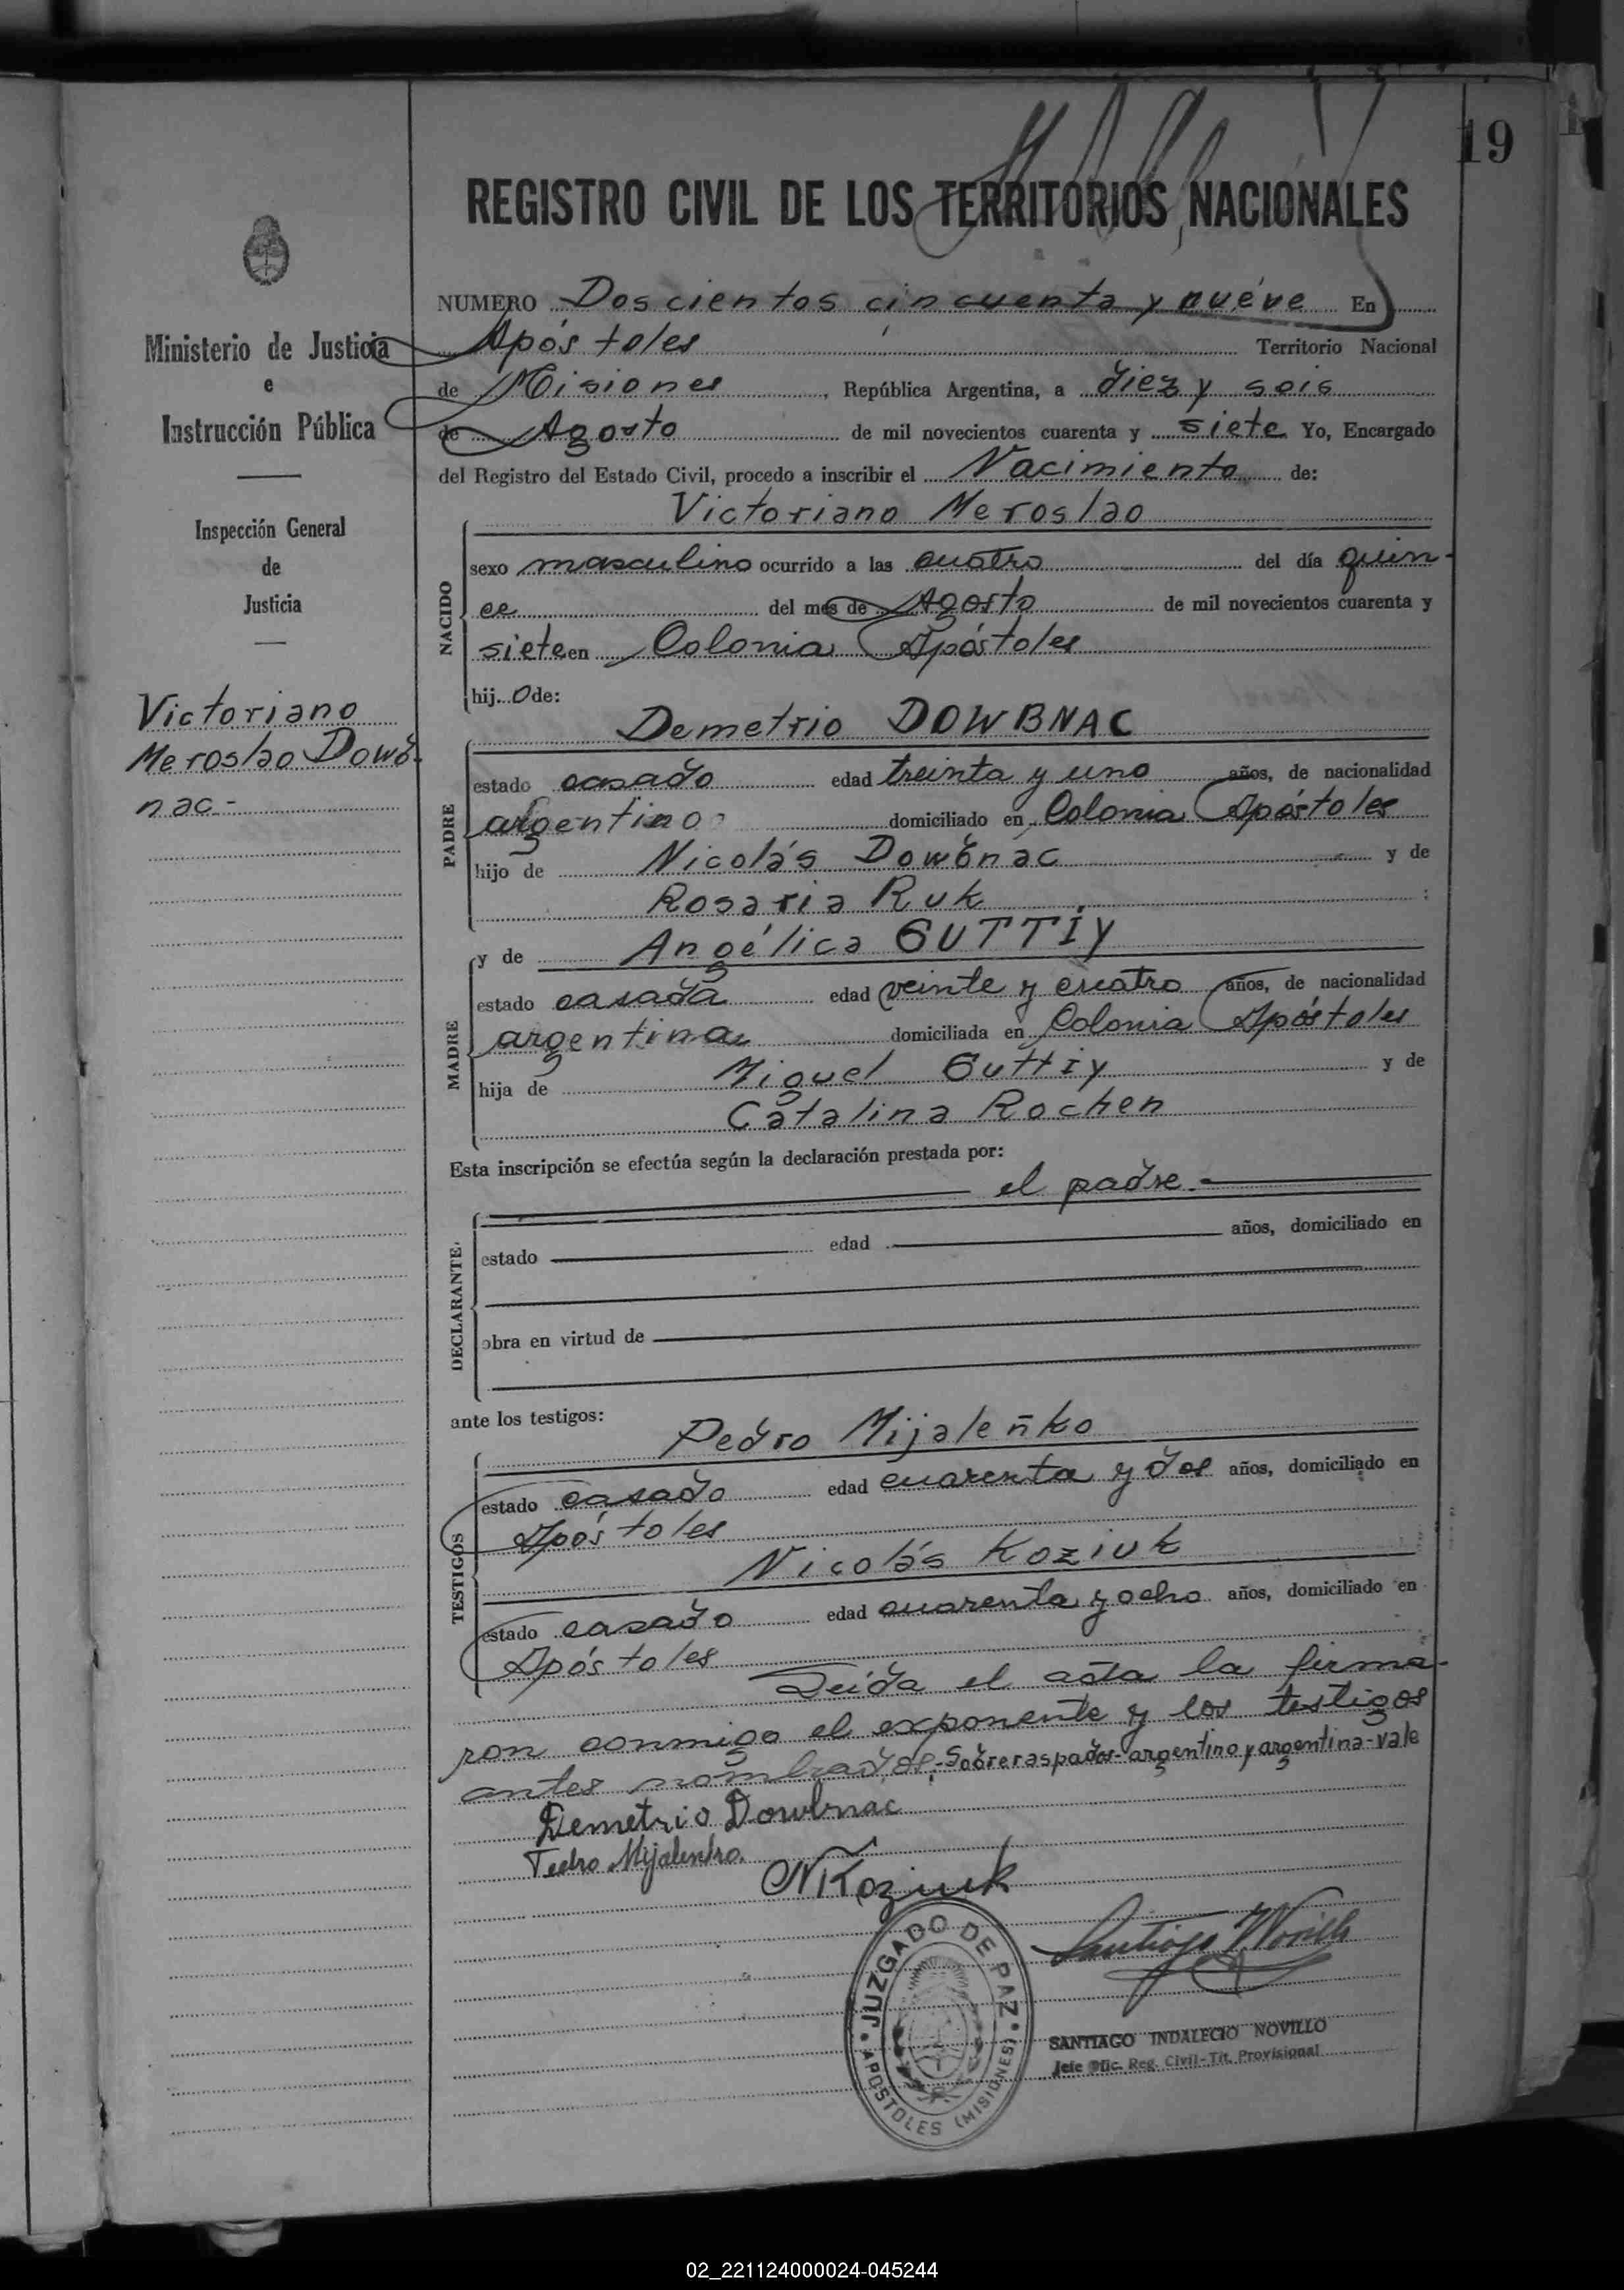 19
REGISTRO CIVIL DE LOS TERRITORIOS NACIONALES
Ministerio de Justicia
e
Instrucción Pública
Inspección General
de
Justicia
Victoriano
Meroslao Dowb-
nac-
NUMERO Doscientos cincuenta y nuéve En
Apóstoles Territorio Nacional
de Misiones, República Argentina, a diez y seis
de Agosto de mil novecientos cuarenta y siete Yo, Encargado
del Registro del Estado Civil, procedo a inscribir el Nacimiento de:
Victoriano Meroslao
NACIDO
sexo masculino ocurrido a las cuatro del día quin-
ce del mes de Agosto de mil novecientos cuarenta y
siete en Colonia Apóstoles
hij o de:
Demetrio DOWBNAC
PADRE
estado casado edad treinta y uno años, de nacionalidad
argentino domiciliado en Colonia Apóstoles
hijo de Nicolás Dowbnac y de
Rosaria Ruk :
y de Angélica GUTTIY
MADRE
estado casada edad veinte y cuatro años, de nacionalidad
argentina domiciliada en Colonia Apóstoles
hija de Miguel Guttiy y de
Catalina Rochen
Esta inscripción se efectúa según la declaración prestada por:
el padre.-
DECLARANTE.
estado edad años, domiciliado en
obra en virtud de
ante los testigos:
Pedro Mijaleñko
TESTIGOS
estado casado edad cuarenta y dos años, domiciliado en
Apóstoles
Nicolás Koziuk
estado casado edad cuarenta y ocho años, domiciliado en
Apóstoles
Leida el acta la firma-
ron conmigo el exponente y los testigos
antes nombrados.-Sobreraspados-argentino y argentina-vale
Demetrio Dowbnac
Pedro Mijalenko.
NKoziuk
JUZGADO DE PAZ
APOSTOLES (MISIONES)
Santiago Novillo
SANTIAGO INDALECIO NOVILLO
Jefe Ofic. Reg. Civil-Tit. Provisional
02_221124000024-045244